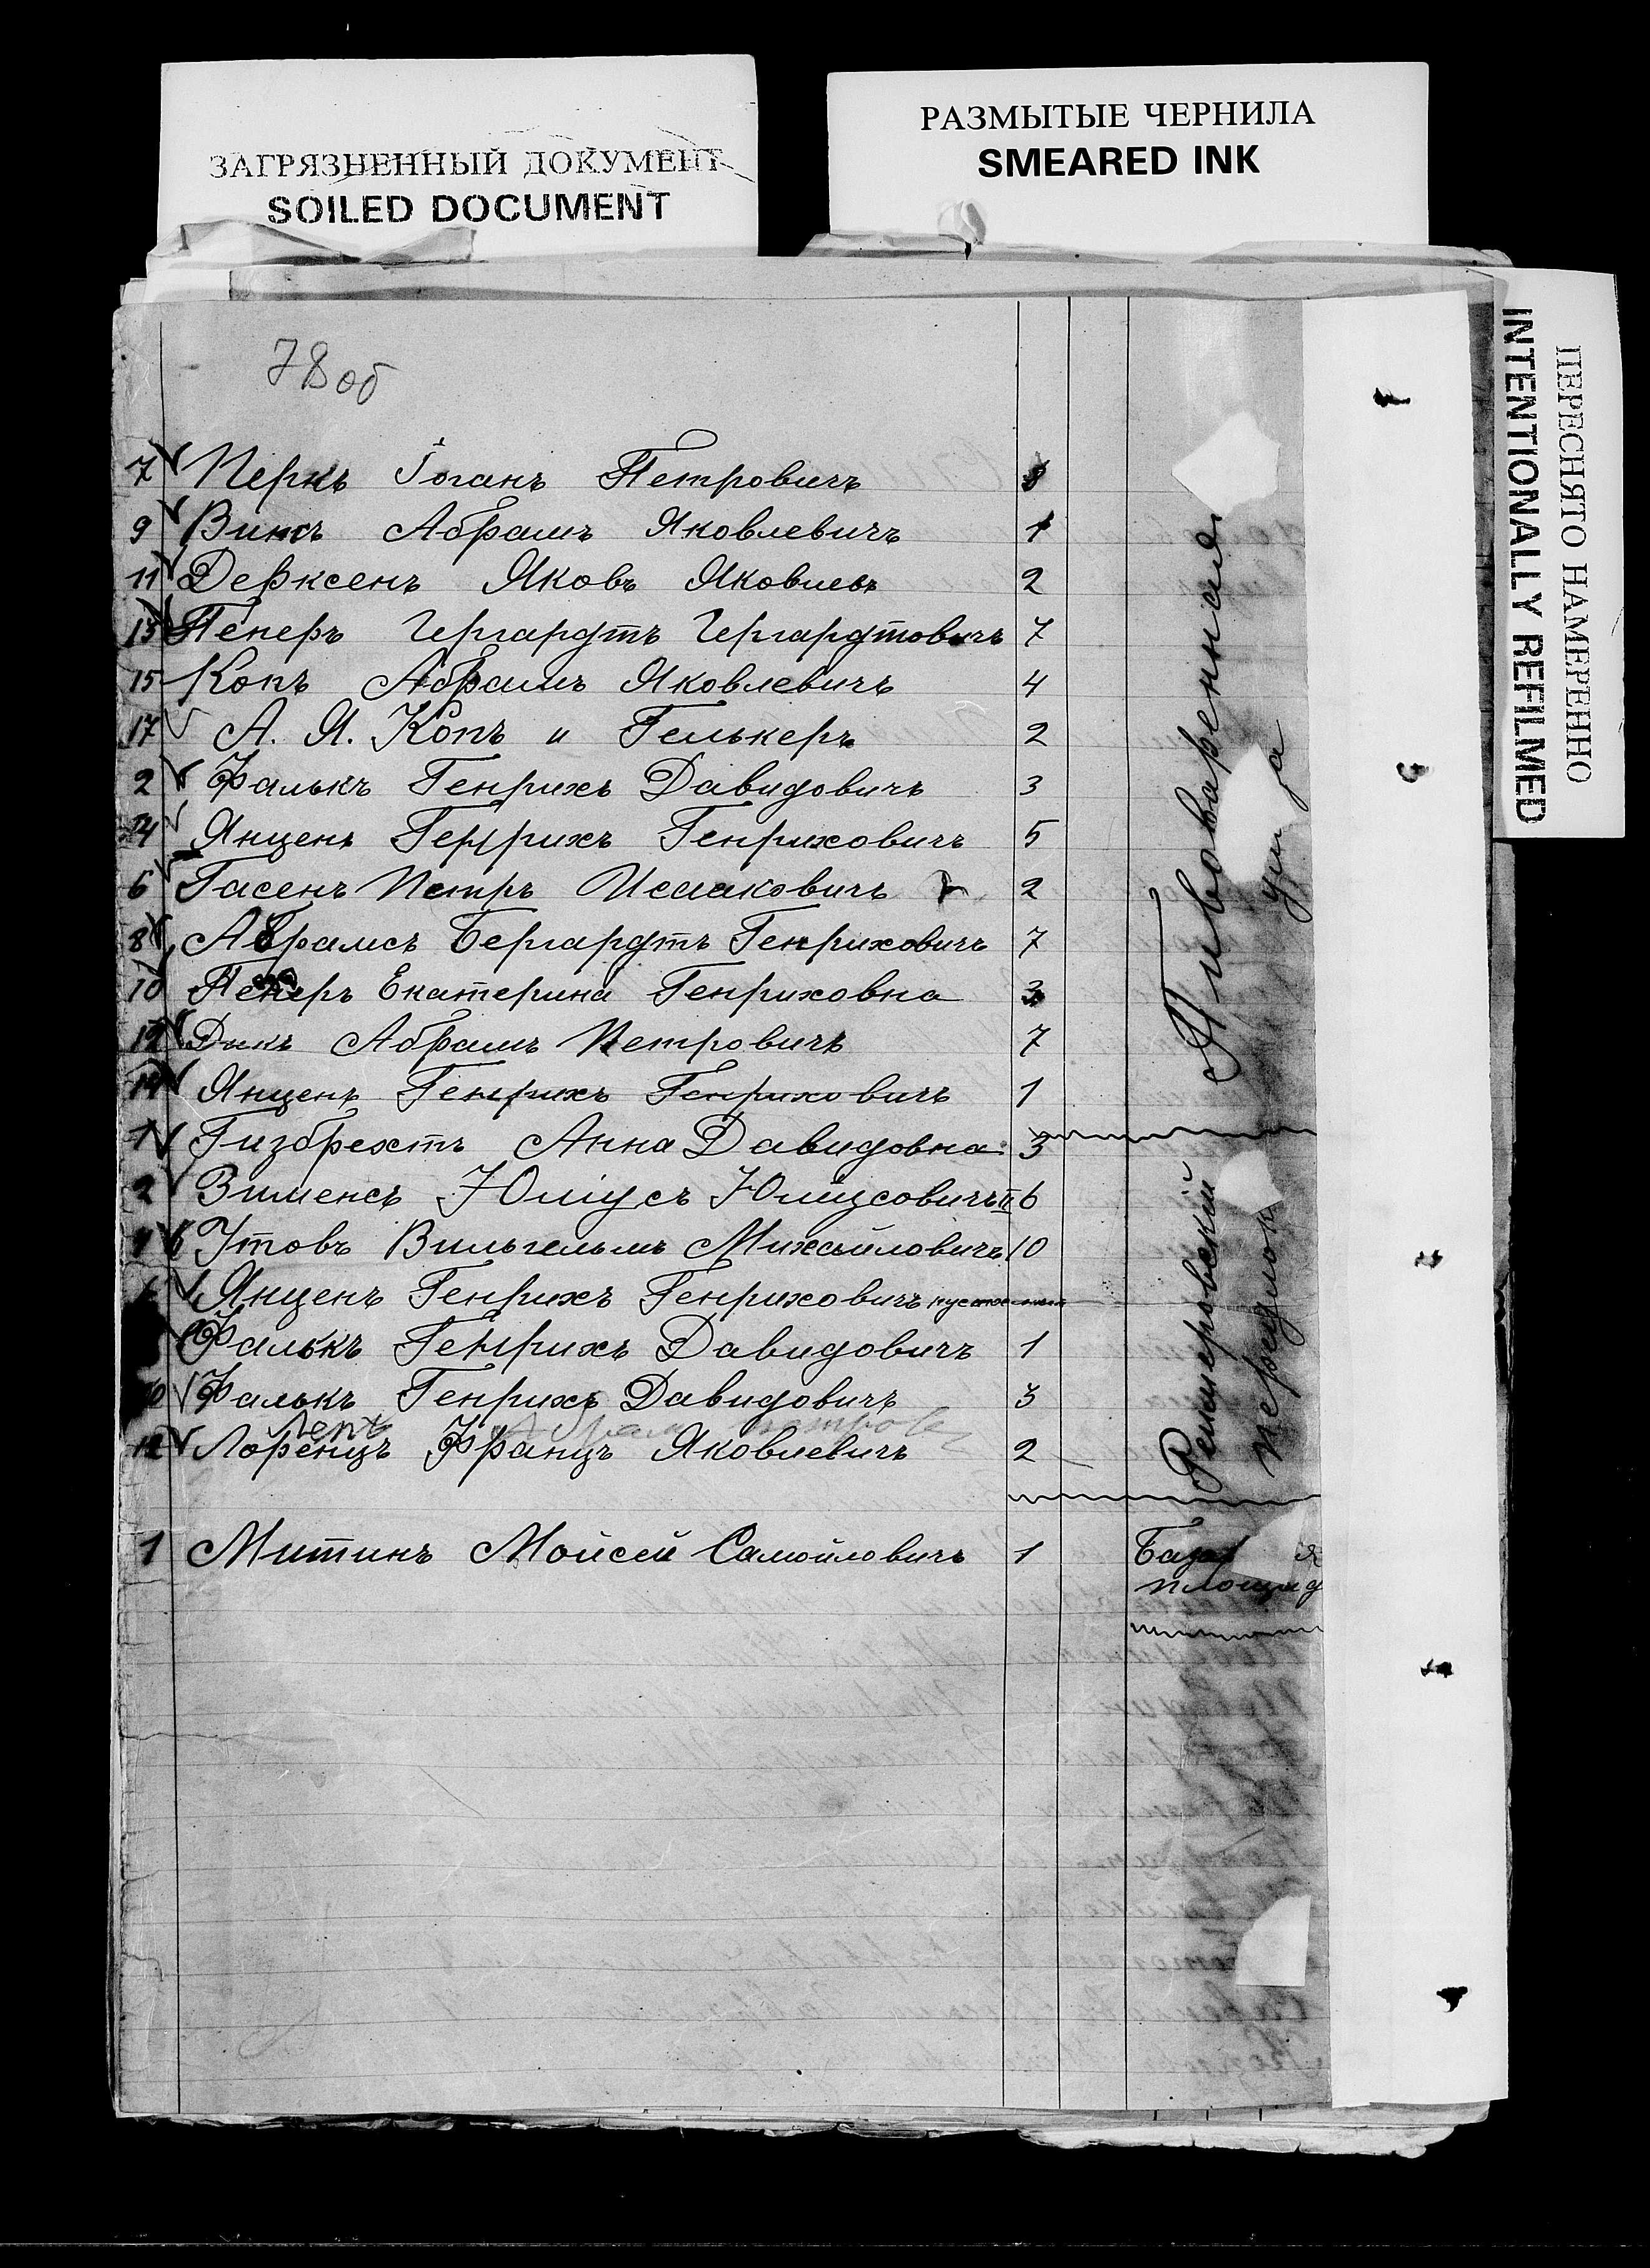 ЗАГРЯЗНЕННЫЙ ДОКУМЕНТ
SOILED DOCUMENT
РАЗМЫТЫЕ ЧЕРНИЛА
SMEARED INK
ПЕРЕСНЯТО НАМЕРЕННО
INTENTIONALLY REFILMED
78 об
7 Перкъ Іоганъ Петровичъ
9 Винсъ Абрамъ Яковлевичъ 1
11 Дерксенъ Яковъ Яковлевъ 2
13 Пенеръ Гергардтъ Гергардтовичъ 7
15 Копъ Абрамъ Яковлевичъ 4
17 А. Я. Копъ и Гелькеръ 2
2 Фалькъ Генрихъ Давидовичъ 3
4 Янценъ Генрихъ Генриховичъ 5
6 Гасенъ Петръ Исааковичъ 2
8 Абрамсъ Бергардтъ Генриховичъ 7
10 Пенеръ Екатерина Генриховна 3
12 Дикъ Абрамъ Петровичъ 7
14 Янценъ Генрихъ Генриховичъ 1
Пивоваренная
1 Гизбрехтъ Анна Давидовна 3
2 Зименсъ Юліусъ Юліусовичъ II 6
4 Утовъ Вильгельмъ Михайловичъ 10
Янценъ Генрихъ Генриховичъ
Фалькъ Генрихъ Давидовичъ 1
10 Фалькъ Генрихъ Давидовичъ 3
Лепъ Абрам Петров
12 Лоренцъ Францъ Яковлевичъ 2
1 Митинъ Мойсей Самойловичъ 1
площад